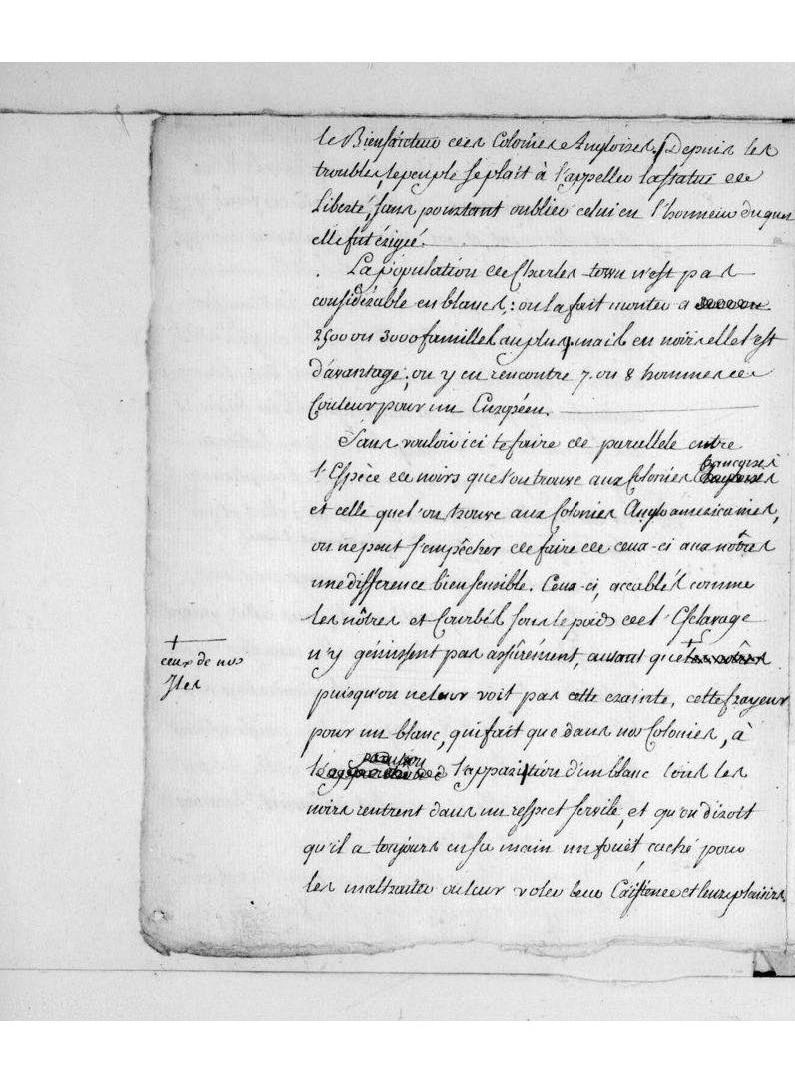 le Bienfaicteur des Colonies Angloises. Depuis les
troubles, le peuple se plait à l'appeller la statue de
Liberté, sans pourtant oublier celui en l'honneur du quel
elle fut érigée.
La population de Charles-town n'est pas
considérable en blancs; on la fait monter a
2500 ou 3000 familles au plus, mais en noirs elle l'est
d'avantage; on y en rencontre 7. ou 8 hommes de
Couleur pour un Européen.
Sans vouloir ici te faire de parallele entre
l'Espèce de noirs que l'on trouve aux Colonies françoises
et celle que l'on trouve aux Colonies Anglo americaines,
on ne peut s'empêcher de faire de ceux-ci aux nôtres
une difference bien sensible. Ceux-ci, accablés comme
les nôtres et Courbés sous le poids de l'Esclavage
n'y gémissent pas assûrément, autant que + les nôtres
+ ceux de nos
Isles
puisqu'on ne leur voit pas cette crainte, cette frayeur
pour un blanc, qui fait que dans nos Colonies, à
l'apparition d'un blanc tous les
noirs rentrent dans un respect servile, et qu'on diroit
qu'il a toujours en sa main un fouët caché pour
les maltraiter ou leur voler leur Existence et leurs plaisirs